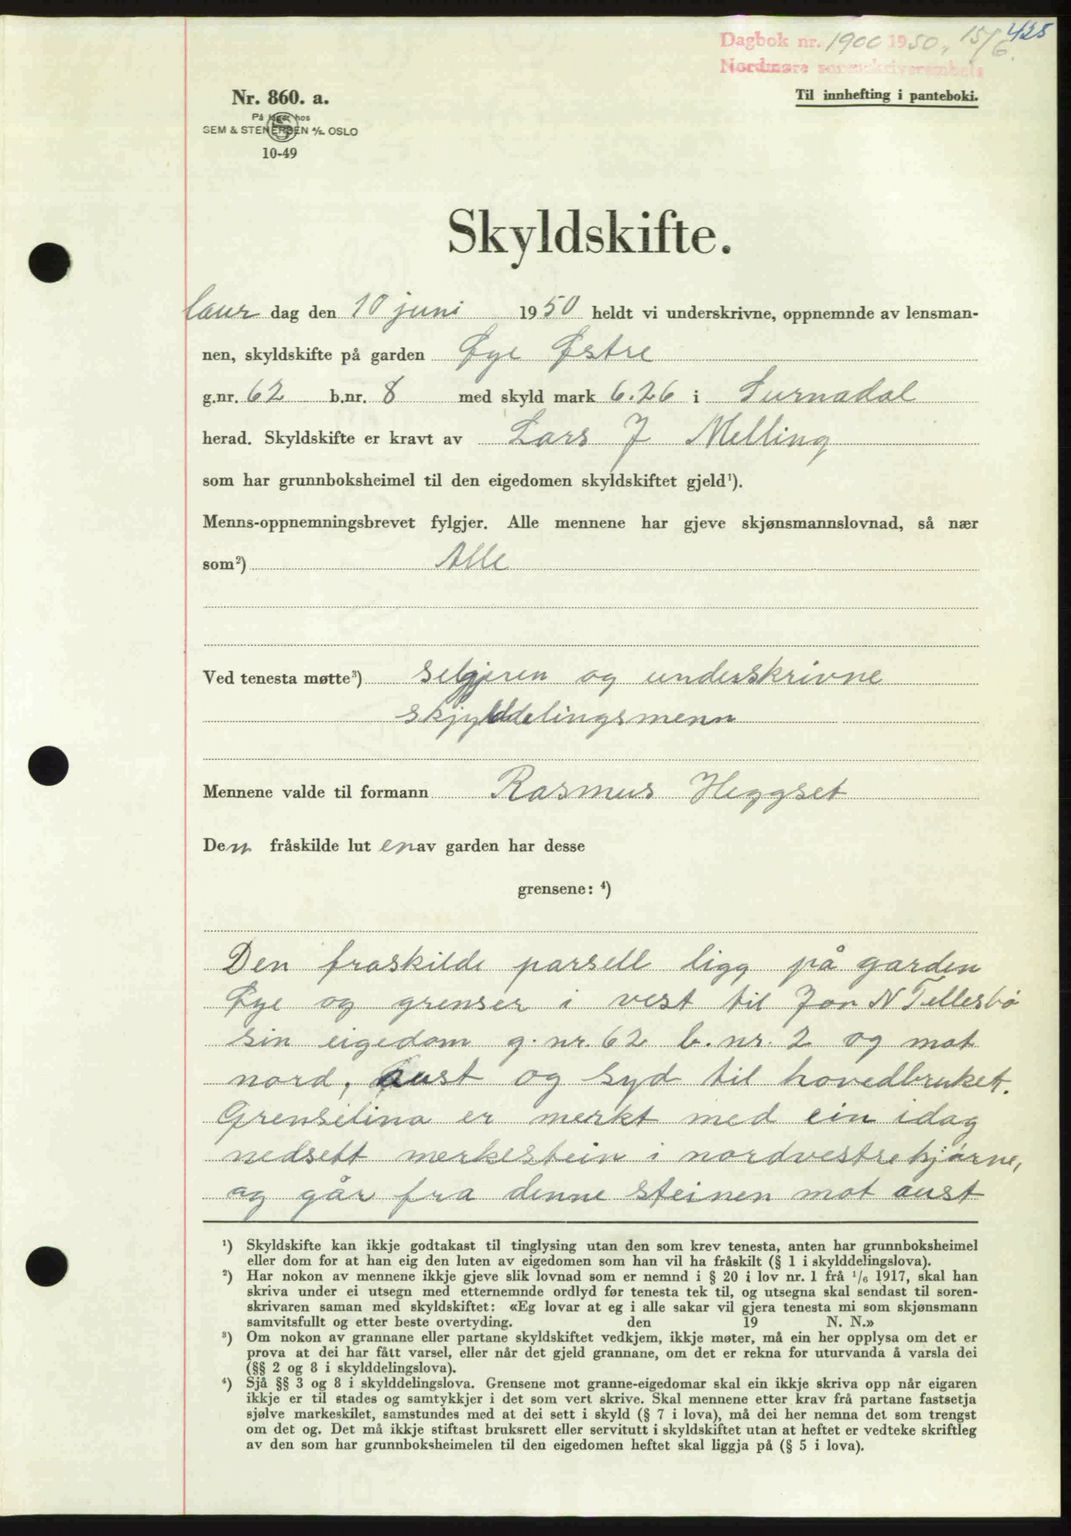 425
Dagbok nr. 1900 1950, 15/6.
Nordmøre sorenskriverembete
Til innhefting i panteboki.
Nr. 860. a.
På lager hos
SEM & STENERSEN A/S. OSLO
10-49
Skyldskifte.
Laur dag den 10 juni 1950 heldt vi underskrivne, oppnemnde av lensman-
nen, skyldskifte på garden Øye Østre
g.nr. 62 b.nr. 8 med skyld mark 6.26 i Surnadal
herad. Skyldskifte er kravt av Lars J Melling
som har grunnboksheimel til den eigedomen skyldskiftet gjeld¹).
Menns-oppnemningsbrevet fylgjer. Alle mennene har gjeve skjønsmannslovnad, så nær
som²) Alle
Ved tenesta møtte³) seljeren og underskrivne
skjylddelingsmenn
Mennene valde til formann Rasmus Heggset
Den fråskilde lut en av garden har desse
grensene: ⁴)
Den fraskilde parsell ligg på garden
Øye og grenser i vest til Jon N Tellesbø
sin eigedom g.nr. 62 b.nr. 2 og mot
nord, aust og syd til hovedbruket.
Grenselina er merkt med ein idag
nedsett merkestein i nordvestre hjørne,
og går fra denne steinen mot aust
¹) Skyldskifte kan ikkje godtakast til tinglysing utan den som krev tenesta, anten har grunnboksheimel
eller dom for at han eig den luten av eigedomen som han vil ha fråskilt (§ 1 i skylddelingslova).
²) Har nokon av mennene ikkje gjeve slik lovnad som er nemnd i § 20 i lov nr. 1 frå 1/6 1917, skal han
skriva under ei utsegn med etternemnde ordlyd før tenesta tek til, og utsegna skal sendast til soren-
skrivaren saman med skyldskiftet: «Eg lovar at eg i alle sakar vil gjera tenesta mi som skjønsmann
samvitsfullt og etter beste overtyding. den 19 N. N.»
³) Om nokon av grannane eller partane skyldskiftet vedkjem, ikkje møter, må ein her opplysa om det er
prova at dei har fått varsel, eller når det gjeld grannane, om det er rekna for uturvanda å varsla dei
(§§ 2 og 8 i skylddelingslova).
⁴) Sjå §§ 3 og 8 i skylddelingslova. Grensene mot granne-eigedomar skal ein ikkje skriva opp når eigaren
ikkje er til stades og samtykkjer i det som vert skrive. Skal mennene etter krav frå partane fastsetja
sjølve markeskilet, samstundes med at dei sett i skyld (§ 7 i lova), må dei her nemna det som trengst
om det og. Det må ikkje stiftast bruksrett eller servitutt i skyldskiftet utan at heftet er vedteke skriftleg
av den som har grunnboksheimelen til den eigedomen heftet skal liggja på (§ 5 i lova).